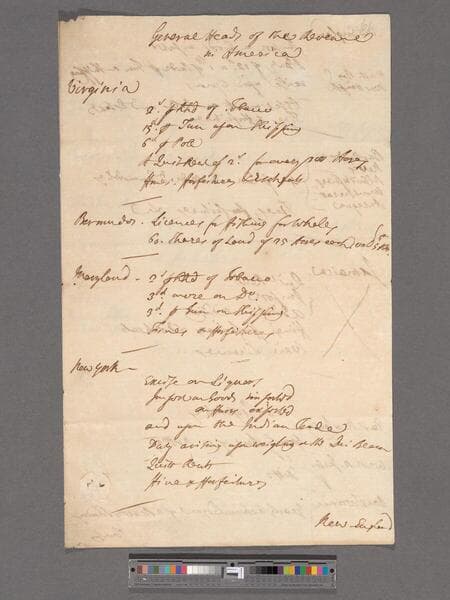 General Heads of the Revenue
in America
Virginia
2s. p hhd of Tobacco
15d. p Tun upon Shipping
6d p Pole
A Quitt Rent of 2s. for every 100 Acres
Fines, Forfeitures & Escheats
Bermudos. Licences for fishing for Whales
60. Shares of Land of 25 Acres each
Maryland - 2s p hhd of Tobacco
3d. more on Do.
3d. p Tun on Shipping
Fines & forfeitures
New York -
Excise on Liquors
Impost on Goods imported
on Furrs exported
and upon the Indian Trade
Duty arising upon weighing at the Beam
Quitt Rents
Fines & Forfeitures
New-England